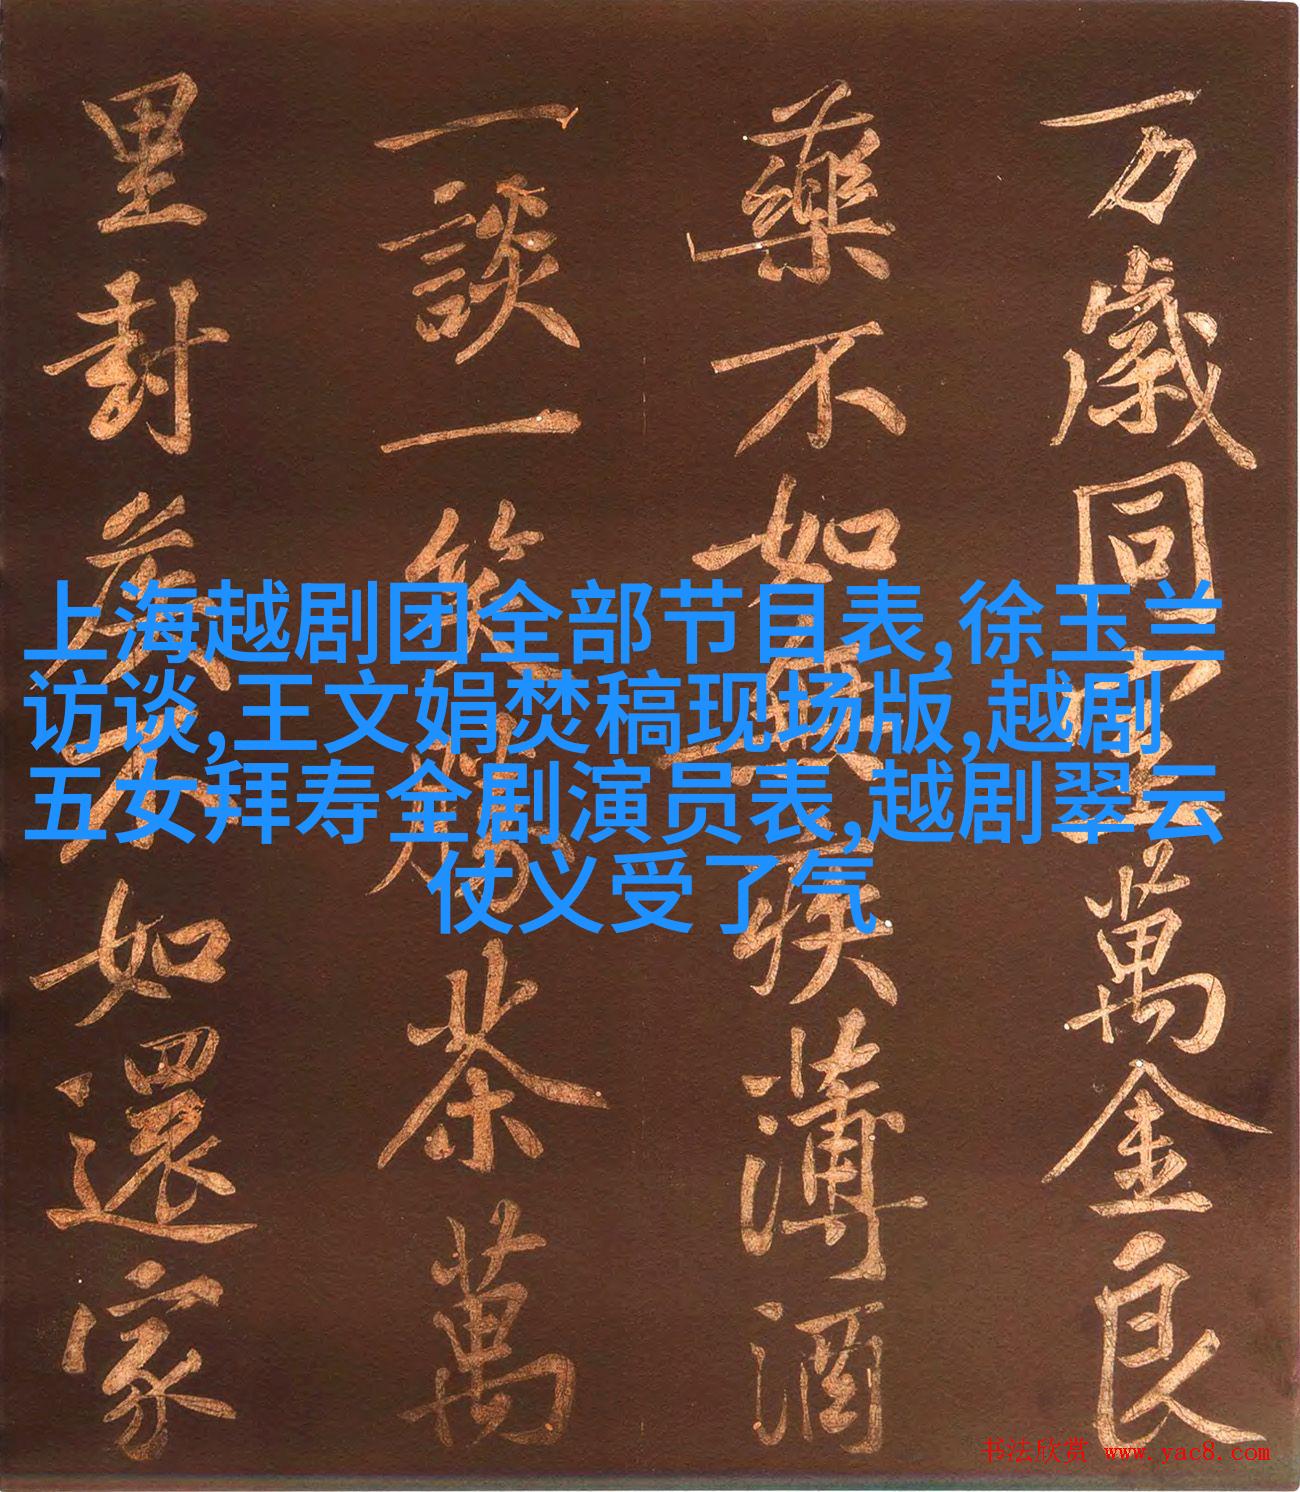 万歲同堂萬金良
藥不如無疾薄酒
一談一笑勝茶萬
里封侯不如還家
上海越剧团全部节目表,徐玉兰
访谈,王文娟焚稿现场版,越剧
五女拜寿全剧演员表,越剧翠云
仗义受了气
书法欣赏 www.yac8.com